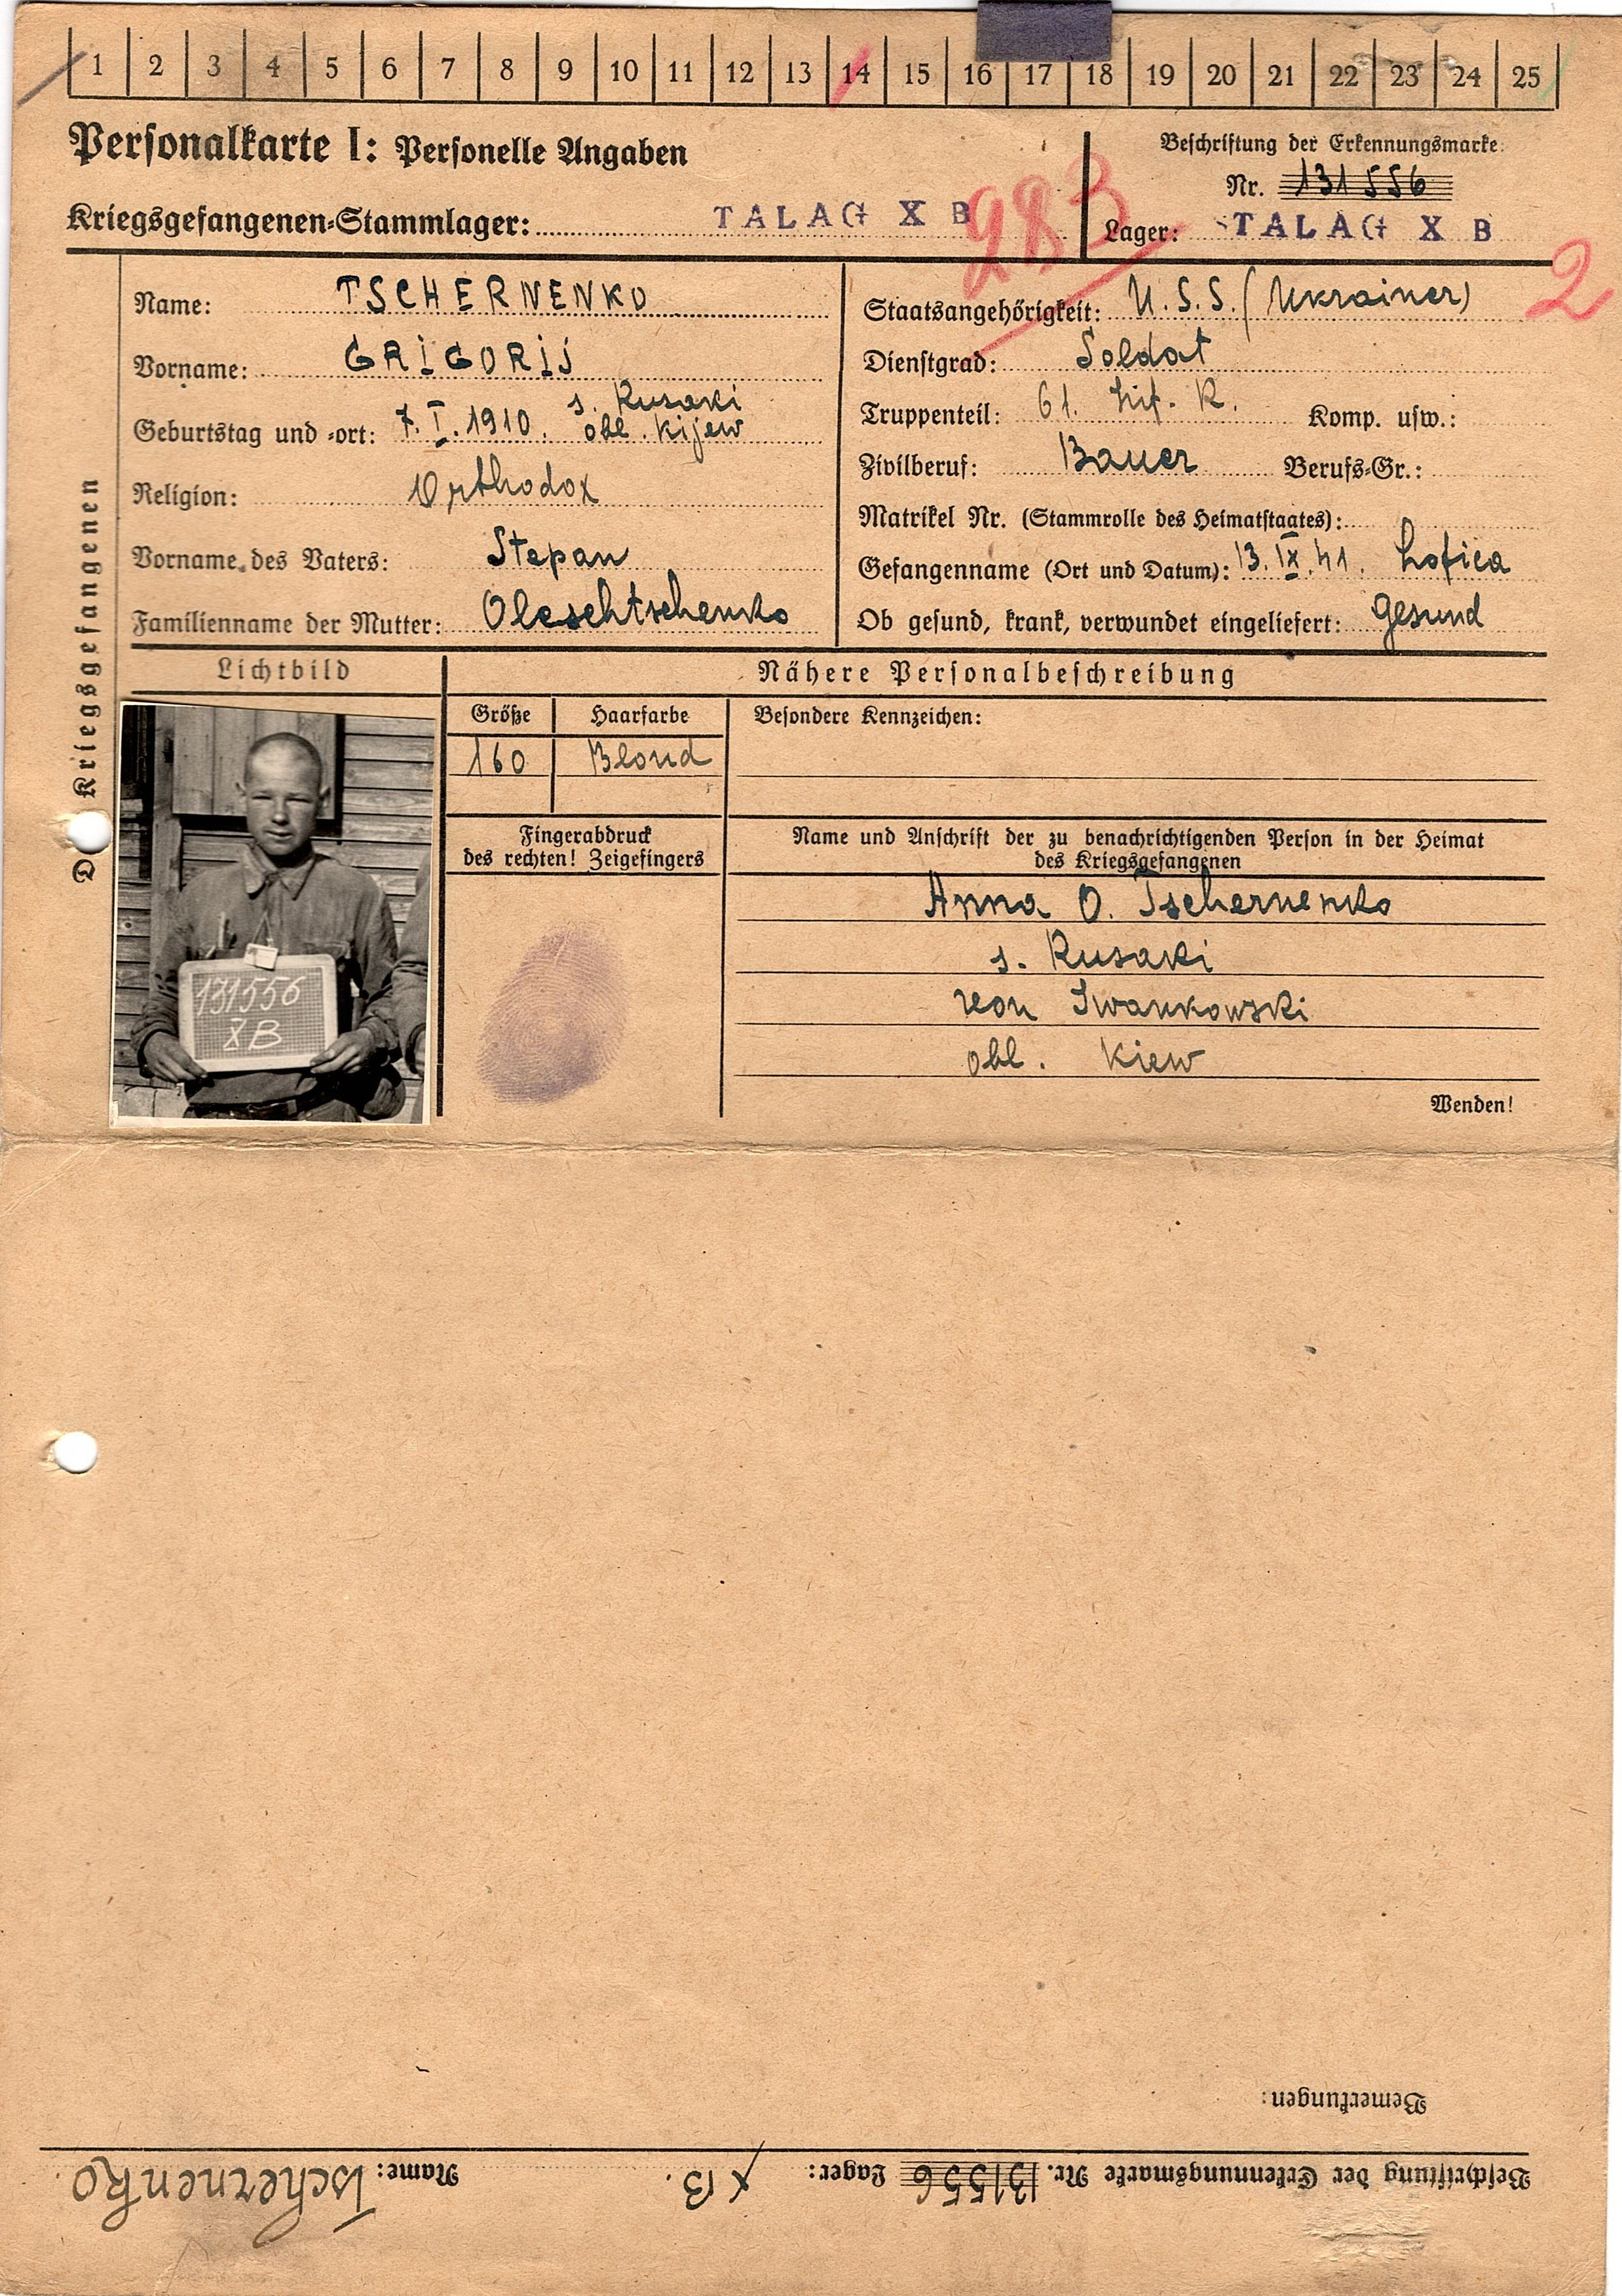 1 2 3 4 5 6 7 8 9 10 11 12 13 14 15 16 17 18 19 20 21 22 23 24 25
Personalkarte I: Personelle Angaben
Kriegsgefangenen-Stammlager: TALAG X B
283
Beschriftung der Erkennungsmarke:
Nr. 131556
Lager: STALAG X B
2
Kriegsgefangenen
Name: TSCHERNENKO
Vorname: GRIGORIJ
Geburtstag und -ort: 7.I.1910. s. Rusaki
obl. Kijew
Religion: Orthodox
Vorname des Vaters: Stepan
Familienname der Mutter: Oleschtschenko
Staatsangehörigkeit: U.S.S. (Ukrainer)
Dienstgrad: Soldat
Truppenteil: 61. Inf. R. Komp. usw.:
Zivilberuf: Bauer Berufs-Gr.:
Matrikel Nr. (Stammrolle des Heimatstaates):
Gefangenname (Ort und Datum): 13.IX.41.
Ob gesund, krank, verwundet eingeliefert: Gesund
Lichtbild
131556
X B
Nähere Personalbeschreibung
Größe Haarfarbe Besondere Kennzeichen:
160 Blond
Fingerabdruck
des rechten! Zeigefingers
Name und Anschrift der zu benachrichtigenden Person in der Heimat
des Kriegsgefangenen
Anna O. Tschernenko
s. Rusaki
Iwankowski
obl. Kiew
Wenden!
Bemerkungen:
Beschriftung der Erkennungsmarke Nr. 131556 Lager: X B. Name: Tschernenko.